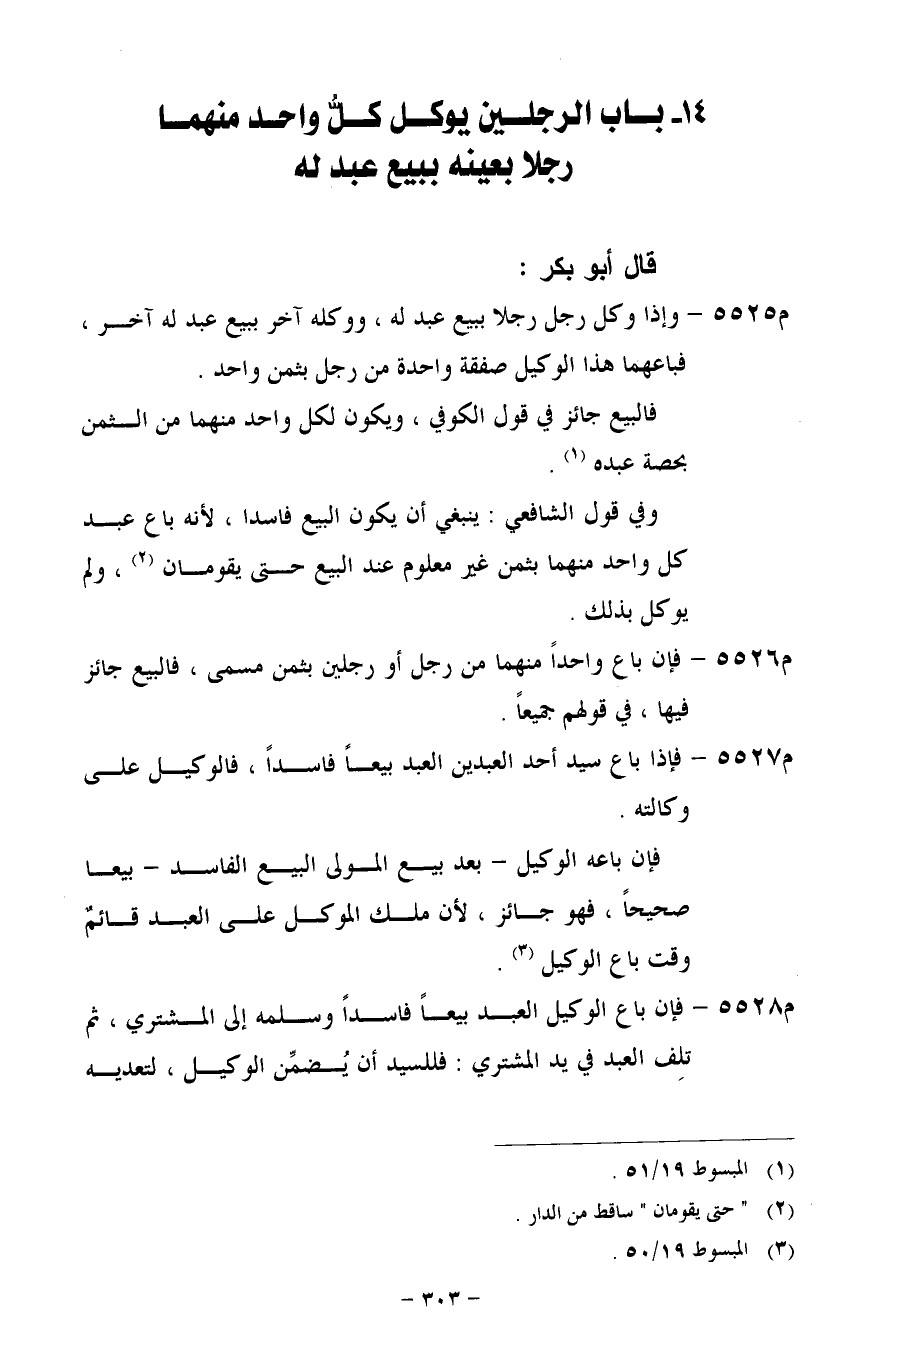 ١٤ـ بـــاب الرجلـــين يوكـــل كـــلُّ واحـــد منهمـــا
رجلا بعينه ببيع عبد له
قال أبو بكر :
م٥٥٢٥ – وإذا وكل رجل رجلا ببيع عبد له ، ووكله آخر ببيع عبد له آخـــر ،
فباعهما هذا الوكيل صفقة واحدة من رجل بثمن واحد .
فالبيع جائز في قول الكوفي ، ويكون لكل واحد منهما من الـــثمن
بحصة عبده (١) .
وفي قول الشافعي : ينبغي أن يكون البيع فاسدا ، لأنه باع عبـــد
كل واحد منهما بثمن غير معلوم عند البيع حـــتى يقومـــان (٢) ، ولم
يوكل بذلك .
م٥٥٢٦ – فإن باع واحداً منهما من رجل أو رجلين بثمن مسمى ، فالبيع جائز
فيها ، في قولهم جميعاً .
م٥٥٢٧ – فإذا باع سيد أحد العبدين العبد بيعـــاً فاســـداً ، فالوكيـــل علـــى
وكالته .
فإن باعه الوكيل – بعد بيـــع المـــولى البيـــع الفاســـد – بيعـــا
صحيحاً ، فهو جـــائز ، لأن ملـــك الموكـــل علـــى العبـــد قـــائمٌ
وقت باع الوكيل (٣) .
م٥٥٢٨ – فإن باع الوكيل العبـــد بيعـــاً فاســـداً وســـلمه إلى المـــشتري ، ثم
تلف العبد في يد المشتري : فللسيد أن يُـــضمِّن الوكيـــل ، لتعديـــه
(١) المبسوط ٥١/١٩ .
(٢) " حتى يقومان " ساقط من الدار .
(٣) المبسوط ٥٠/١٩ .
– ٣٠٣ –